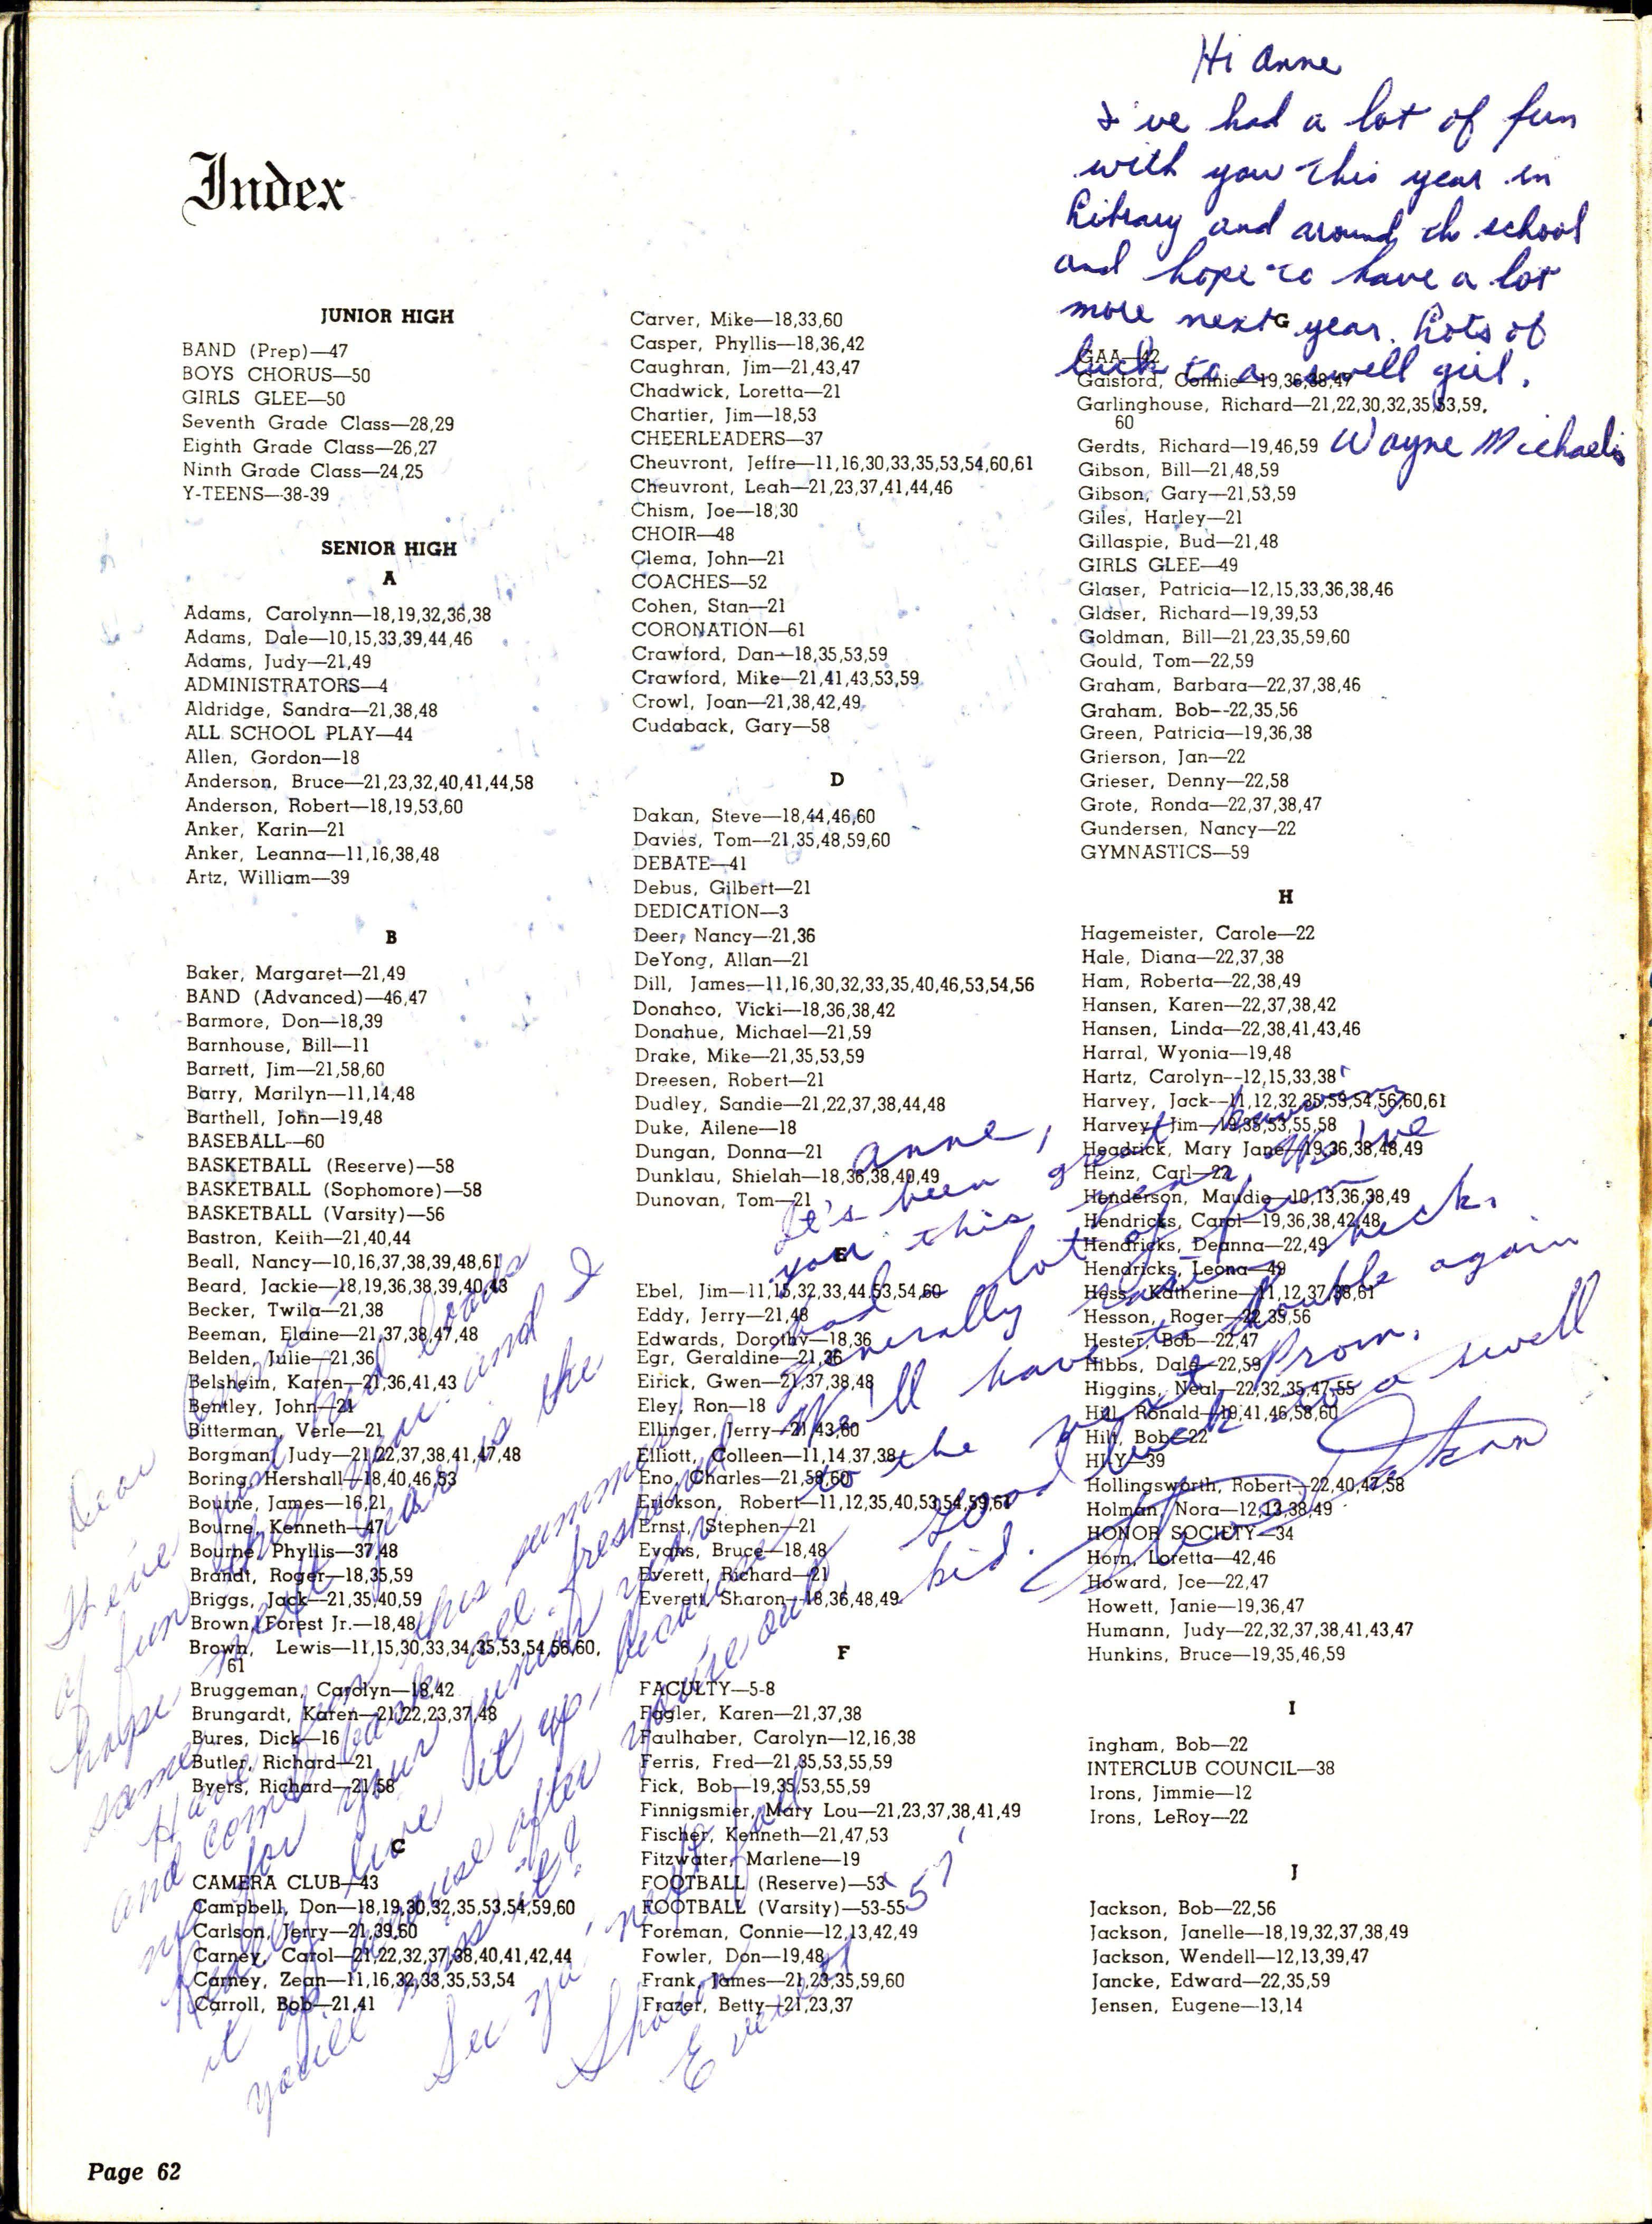 Hi Anne
I've had a lot of fun
with you this year in
Library and around th school
and hope to have a lot
more next year. Lots of
luck to a swell girl.
Wayne Michaelis
Index
JUNIOR HIGH
BAND (Prep)—47
BOYS CHORUS—50
GIRLS GLEE—50
Seventh Grade Class—28,29
Eighth Grade Class—26,27
Ninth Grade Class—24,25
Y-TEENS—38-39
SENIOR HIGH
A
Adams, Carolynn—18,19,32,36,38
Adams, Dale—10,15,33,39,44,46
Adams, Judy—21,49
ADMINISTRATORS—4
Aldridge, Sandra—21,38,48
ALL SCHOOL PLAY—44
Allen, Gordon—18
Anderson, Bruce—21,23,32,40,41,44,58
Anderson, Robert—18,19,53,60
Anker, Karin—21
Anker, Leanna—11,16,38,48
Artz, William—39
B
Baker, Margaret—21,49
BAND (Advanced)—46,47
Barmore, Don—18,39
Barnhouse, Bill—11
Barrett, Jim—21,58,60
Barry, Marilyn—11,14,48
Barthell, John—19,48
BASEBALL—60
BASKETBALL (Reserve)—58
BASKETBALL (Sophomore)—58
BASKETBALL (Varsity)—56
Bastron, Keith—21,40,44
Beall, Nancy—10,16,37,38,39,48,61
Beard, Jackie—18,19,36,38,39,40,43
Becker, Twila—21,38
Beeman, Elaine—21,37,38,47,48
Belden, Julie—21,36
Belsheim, Karen—21,36,41,43
Bentley, John—21
Bitterman, Verle—21
Borgman, Judy—21,22,37,38,41,47,48
Boring, Hershall—18,40,46,53
Bourne, James—16,21
Bourne, Kenneth—47
Bourne, Phyllis—37,48
Brandt, Roger—18,35,59
Briggs, Jack—21,35,40,59
Brown, Forest Jr.—18,48
Brown, Lewis—11,15,30,33,34,35,53,54,56,60,
61
Bruggeman, Carolyn—18,42
Brungardt, Karen—21,22,23,37,48
Bures, Dick—16
Butler, Richard—21
Byers, Richard—21,58
C
CAMERA CLUB—43
Campbell, Don—18,19,30,32,35,53,54,59,60
Carlson, Jerry—21,39,60
Carney, Carol—21,22,32,37,38,40,41,42,44
Carney, Zean—11,16,32,33,35,53,54
Carroll, Bob—21,41
Carver, Mike—18,33,60
Casper, Phyllis—18,36,42
Caughran, Jim—21,43,47
Chadwick, Loretta—21
Chartier, Jim—18,53
CHEERLEADERS—37
Cheuvront, Jeffre—11,16,30,33,35,53,54,60,61
Cheuvront, Leah—21,23,37,41,44,46
Chism, Joe—18,30
CHOIR—48
Clema, John—21
COACHES—52
Cohen, Stan—21
CORONATION—61
Crawford, Dan—18,35,53,59
Crawford, Mike—21,41,43,53,59
Crowl, Joan—21,38,42,49
Cudaback, Gary—58
D
Dakan, Steve—18,44,46,60
Davies, Tom—21,35,48,59,60
DEBATE—41
Debus, Gilbert—21
DEDICATION—3
Deer, Nancy—21,36
DeYong, Allan—21
Dill, James—11,16,30,32,33,35,40,46,53,54,56
Donahoo, Vicki—18,36,38,42
Donahue, Michael—21,59
Drake, Mike—21,35,53,59
Dreesen, Robert—21
Dudley, Sandie—21,22,37,38,44,48
Duke, Ailene—18
Dungan, Donna—21
Dunklau, Shielah—18,36,38,40,49
Dunovan, Tom—21
E
Ebel, Jim—11,15,32,33,44,53,54,60
Eddy, Jerry—21,48
Edwards, Dorothy—18,36
Egr, Geraldine—21,36
Eirick, Gwen—21,37,38,48
Eley, Ron—18
Ellinger, Jerry—21,43,60
Elliott, Colleen—11,14,37,38
Eno, Charles—21,58,60
Erickson, Robert—11,12,35,40,53,54,59,61
Ernst, Stephen—21
Evans, Bruce—18,48
Everett, Richard—21
Everett, Sharon—18,36,48,49
F
FACULTY—5-8
Fagler, Karen—21,37,38
Faulhaber, Carolyn—12,16,38
Ferris, Fred—21,35,53,55,59
Fick, Bob—19,35,53,55,59
Finnigsmier, Mary Lou—21,23,37,38,41,49
Fischer, Kenneth—21,47,53
Fitzwater, Marlene—19
FOOTBALL (Reserve)—53
FOOTBALL (Varsity)—53-55
Foreman, Connie—12,13,42,49
Fowler, Don—19,48
Frank, James—21,23,35,59,60
Frazer, Betty—21,23,37
G
GAA—42
Gaisford, Connie—19,36,38,47
Garlinghouse, Richard—21,22,30,32,35,53,59,
60
Gerdts, Richard—19,46,59
Gibson, Bill—21,48,59
Gibson, Gary—21,53,59
Giles, Harley—21
Gillaspie, Bud—21,48
GIRLS GLEE—49
Glaser, Patricia—12,15,33,36,38,46
Glaser, Richard—19,39,53
Goldman, Bill—21,23,35,59,60
Gould, Tom—22,59
Graham, Barbara—22,37,38,46
Graham, Bob—22,35,56
Green, Patricia—19,36,38
Grierson, Jan—22
Grieser, Denny—22,58
Grote, Ronda—22,37,38,47
Gundersen, Nancy—22
GYMNASTICS—59
H
Hagemeister, Carole—22
Hale, Diana—22,37,38
Ham, Roberta—22,38,49
Hansen, Karen—22,37,38,42
Hansen, Linda—22,38,41,43,46
Harral, Wyonia—19,48
Hartz, Carolyn—12,15,33,38
Harvey, Jack—11,12,32,35,53,54,56,60,61
Harvey, Jim—19,35,53,55,58
Headrick, Mary Jane—19,36,38,48,49
Heinz, Carl—22
Henderson, Maudie—10,13,36,38,49
Hendricks, Carol—19,36,38,42,48
Hendricks, Deanna—22,49
Hendricks, Leona—49
Hess, Katherine—11,12,37,38,61
Hesson, Roger—22,35,56
Hester, Bob—22,47
Hibbs, Dale—22,59
Higgins, Neal—22,32,35,47,55
Hill, Ronald—19,41,46,58,60
Hilt, Bob—22
HI-Y—39
Hollingsworth, Robert—22,40,47,58
Holman, Nora—12,13,38,49
HONOR SOCIETY—34
Horn, Loretta—42,46
Howard, Joe—22,47
Howett, Janie—19,36,47
Humann, Judy—22,32,37,38,41,43,47
Hunkins, Bruce—19,35,46,59
I
Ingham, Bob—22
INTERCLUB COUNCIL—38
Irons, Jimmie—12
Irons, LeRoy—22
J
Jackson, Bob—22,56
Jackson, Janelle—18,19,32,37,38,49
Jackson, Wendell—12,13,39,47
Jancke, Edward—22,35,59
Jensen, Eugene—13,14
Anne,
It's been great knowing
you this year. We've
had lot of fun
generally raisen heck.
We'll have to double again
to the next Prom.
Good luck to a swell
kid.
Steve Dakan
Dear Anne,
I've just had loads
of fun with you and I
hope next year is the
same.
Have fun this summer
and come back all freshened
up for your junior year.
Really live it up, because
it because after you're out,
you'll miss it!
See ya' next fall
Sharon
Everett '57'
Page 62